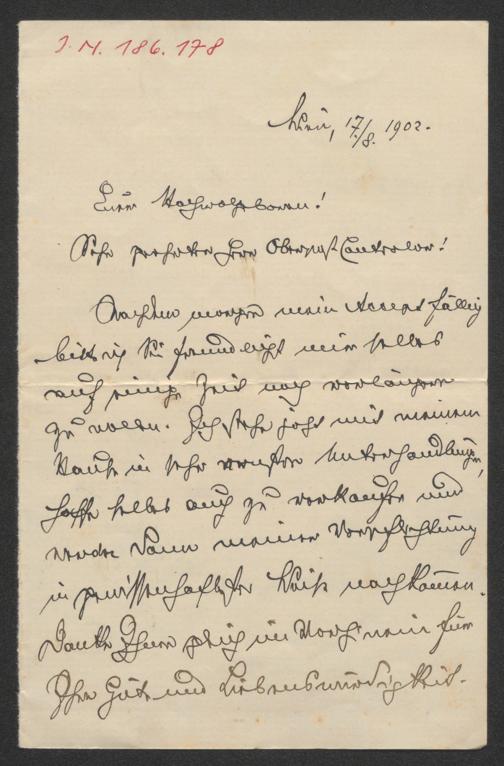 I. N. 186.178
Wien, 17./8. 1902.
Euer Hochwolgeboren!
Sehr geehrter Herr Oberpost Controlor!
Nachdem morgen mein Accept fällig
bitte ich Sie freundlichst mir selbes
auf einige Zeit noch verlängern
zu wollen. Ich stehe jetzt mit meinem
Hause in sehr ernsten Unterhandlungen,
hoffe selbes auch zu verkaufen und
werde dann meiner Verpflichtung
in gewissenhaftester Weise nachkom̅en.
Danke Ihnen gleich im Vorhinein für
Ihre Güte und Liebenswürdigkeit.